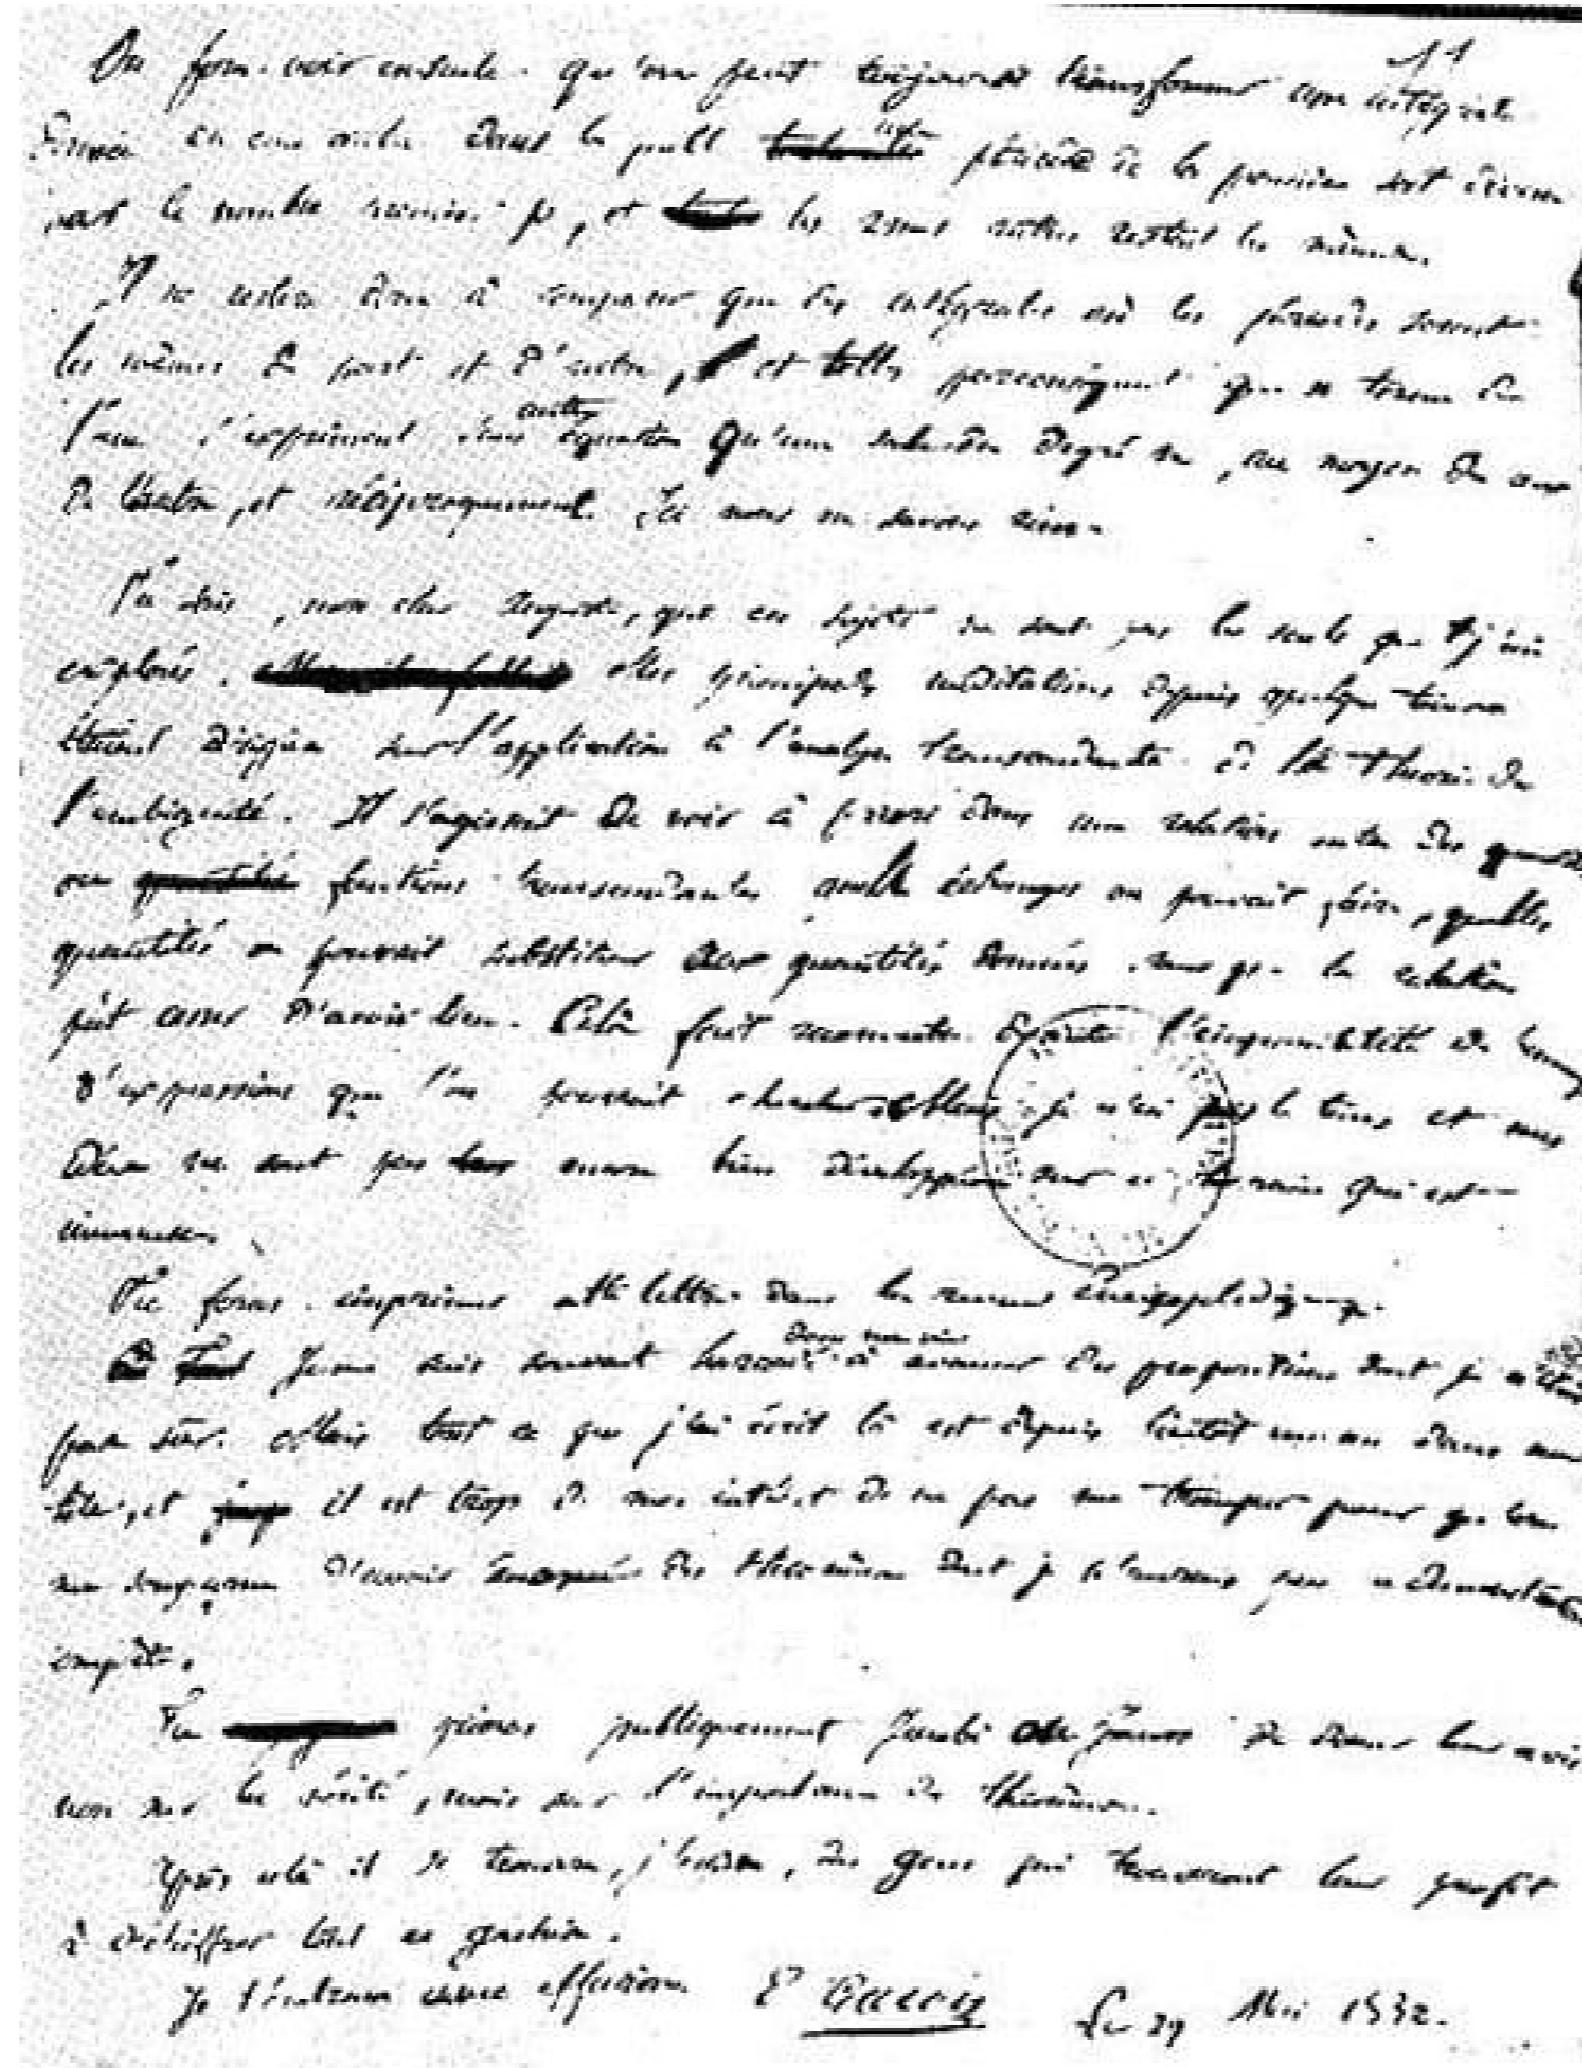 11
On fera voir ensuite qu'on peut toujours transformer une intégrale
donnée en une autre dans laquelle une période de la première soit divisée
par le nombre premier p, et les 2n-1 autres restent les mêmes.
Il ne restera donc à comparer que des intégrales où les périodes seront
les mêmes de part et d'autre, et telles par conséquent que n termes de
l'une s'expriment sans autre équation qu'une seule du degré n, au moyen de ceux
de l'autre, et réciproquement. Ici nous ne savons rien.
Tu sais, mon cher Auguste, que ces sujets ne sont pas les seuls que j'aie
explorés. Mes principales méditations depuis quelque temps
étaient dirigées sur l'application à l'analyse transcendante de la théorie de
l'ambiguité. Il s'agissait de voir à priori dans une relation entre des quantités
ou fonctions transcendantes quels échanges on pouvait faire, quelles
quantités on pouvait substituer aux quantités données sans que la relation
pût cesser d'avoir lieu. Celà fait reconnaître l'impossibilité de beaucoup
d'expressions que l'on pourrait chercher. Mais je n'ai pas le tems et mes
idées ne sont pas encore bien développées sur ce terrain qui est
immense.
Tu feras imprimer cette lettre dans la revue encyclopédique.
Je me suis souvent hasardé dans ma vie à avancer des propositions dont je n'étais
pas sûr. Mais tout ce que j'ai écrit là est depuis bientôt un an dans ma
tête, et il est trop de mon intérêt de ne pas me tromper pour qu'on
me soupçonne d'avoir énoncé des théorèmes dont je n'aurais pas la démonstration
complète.
Tu prieras publiquement Jacobi ou Gauss de donner leur avis
non sur la vérité, mais sur l'importance des théorèmes.
Après celà il se trouvera, j'espère, des gens qui trouveront leur profit
à déchiffrer tout ce gachis.
Je t'embrasse avec effusion. E Galois Le 29 Mai 1832.